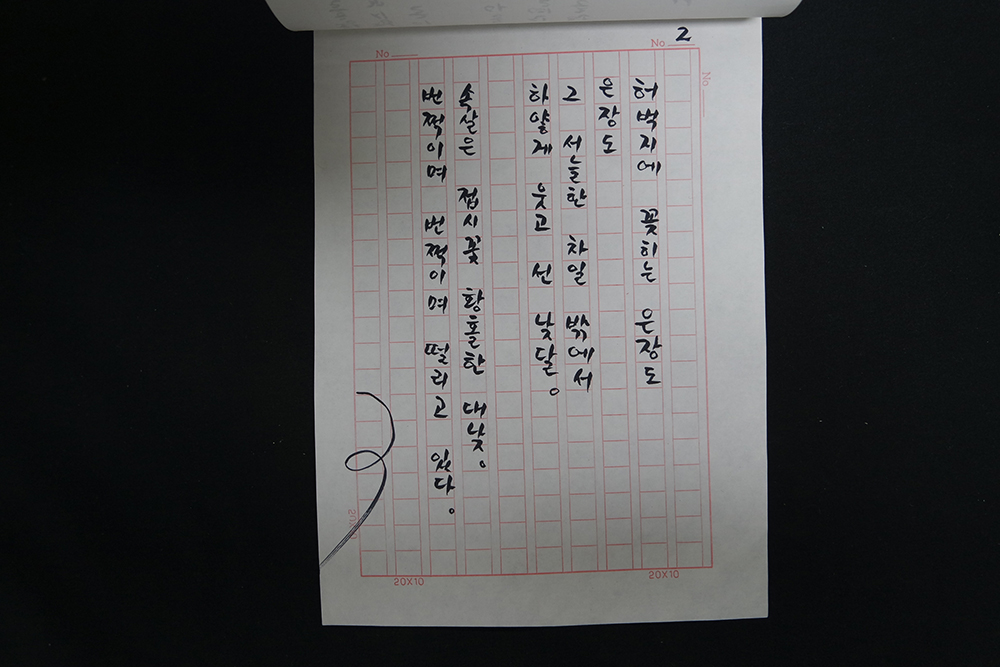 2
No
No
No
허벅지에 꽂히는 은장도
은장도
그 서늘한 차일 밖에서
하얗게 웃고 선 낮달。
속살은 접시꽃 황홀한 대낮。
번쩍이며 번쩍이며 떨리고 있다。
20X10
20X10